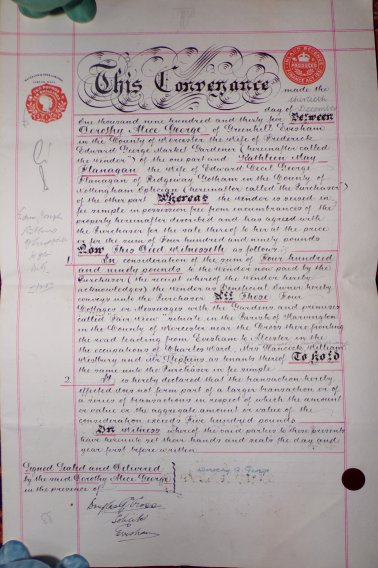 This Conveyance made the
thirtieth
day of December
One thousand nine hundred and thirty five Between
Dorothy Alice George of Greenhill Evesham
in the County of Worcester the wife of Frederick
Edward George Market Gardener (hereinafter called
the Vendor") of the one part and Kathleen May
Flanagan the Wife of Edward Cecil George
Flanagan of Ridgeway Gotham in the County of
Nottingham Optician (hereinafter called the Purchaser")
of the other part Whereas the Vendor is seized in
fee simple in possession free from encumbrances of the
property hereinafter described and has agreed with
the Purchaser for the sale thereof to her at the price
or for the sum of Four hundred and ninety pounds
Now This Deed Witnesseth as follows:
1. In consideration of the sum of Four hundred
and ninety pounds to the Vendor now paid by the
Purchaser (the receipt whereof the Vendor hereby
acknowledges) the Vendor as Beneficial Owner hereby
conveys unto the Purchaser All Those Four
Cottages or Messuages with the Gardens and premises
called "Fair View" situate in the Parish of Harvington
in the County of Worcester near the Cross there fronting
the road leading from Evesham to Alcester in the
the occupations of Charles Ward, Mrs Hancock, William
Westbury and Stephens as tenants thereof To Hold
the same unto the Purchaser in fee simple
2. It is hereby declared that the transaction hereby
effected does not form part of a larger transaction or of
a series of transactions in respect of which the amount
or value or the aggregate amount or value of the
consideration exceeds Five hundred pounds
In Witness whereof the said parties to these presents
have hereunto set their hands and seals the day and
year first before written.
Signed Sealed and Delivered
by the said Dorothy Alice George
in the presence of
Dorothy A. George
Evesham